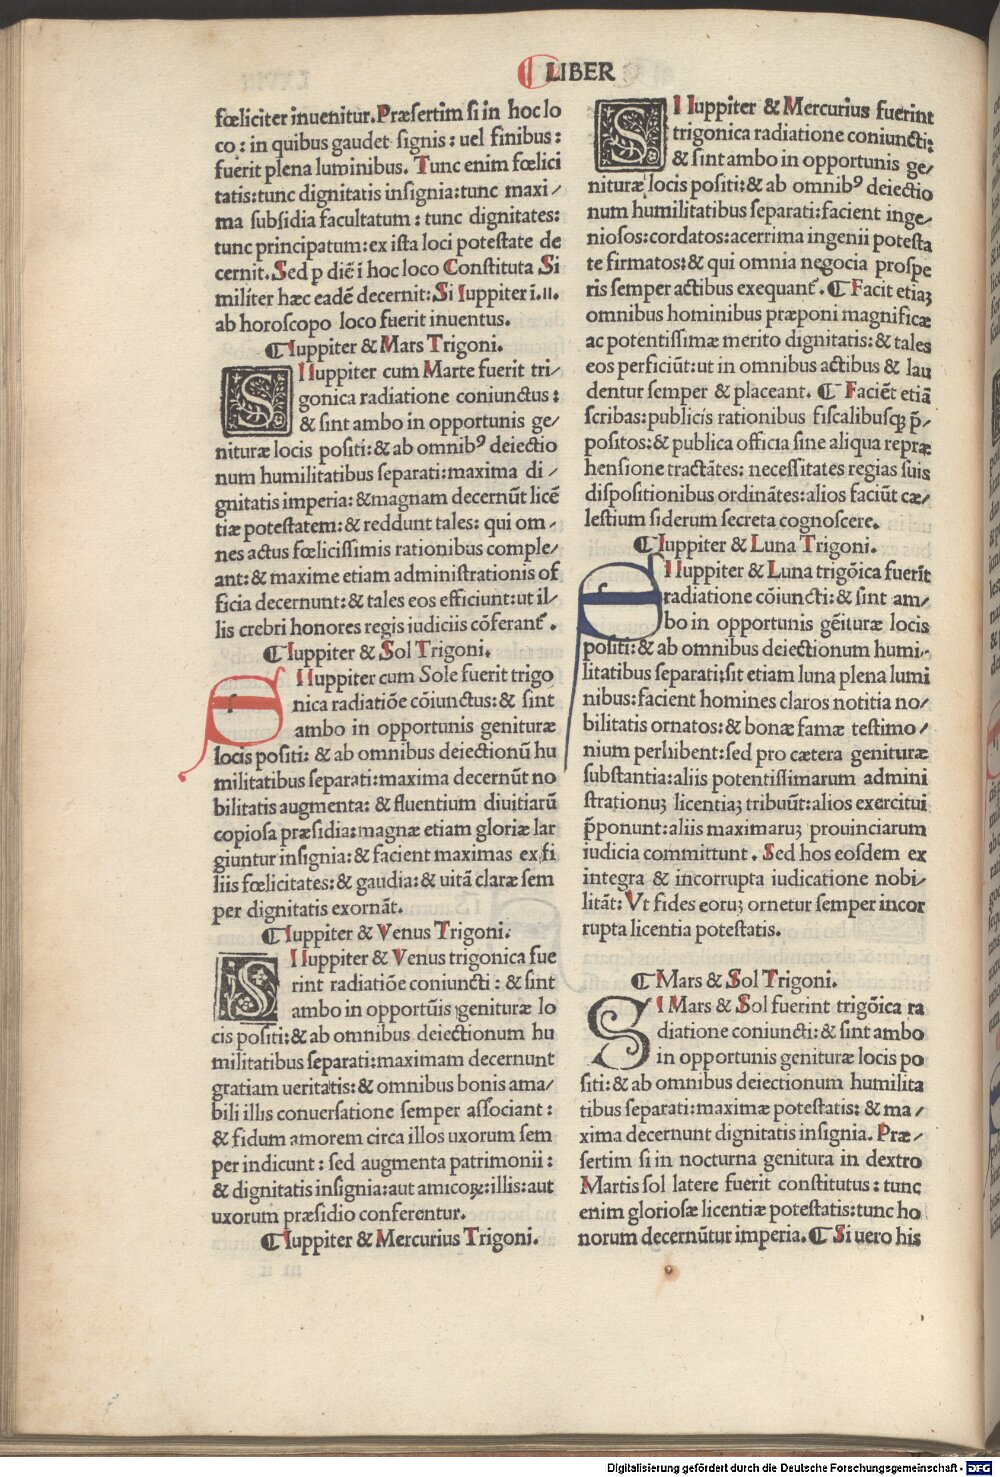 LIBER
fœliciter inuenitur. Præsertim si in hoc lo
co: in quibus gaudet signis: uel finibus:
fuerit plena luminibus. Tunc enim fœlici
tatis: tunc dignitatis insignia: tunc maxi/
ma subsidia facultatum: tunc dignitates:
tunc principatum: ex ista loci potestate de
cernit. Sed p diẽ ĩ hoc loco Constituta Si
militer hæc eadẽ decernit: Si Iuppiter ĩ .II.
ab horoscopo loco fuerit inuentus.
¶ Iuppiter & Mars Trigoni.
SI Iuppiter cum Marte fuerit tri/
gonica radiatione coniunctus:
& sint ambo in opportunis ge/
nituræ locis positi: & ab omnibꝰ deiectio
num humilitatibus separati: maxima di/
gnitatis imperia: & magnam decernũt licẽ
tiæ potestatem: & reddunt tales: qui om/
nes actus fœlicissimis rationibus comple/
ant: & maxime etiam administrationis of
ficia decernunt: & tales eos efficiunt: ut il/
lis crebri honores regis iudiciis cõferant᷑.
¶ Iuppiter & Sol Trigoni.
SI Iuppiter cum Sole fuerit trigo
nica radiatiõe cõiunctus: & sint
ambo in opportunis genituræ
locis positi: & ab omnibus deiectionũ hu
militatibus separati: maxima decernũt no
bilitatis augmenta: & fluentium diuitiarũ
copiosa præsidia: magnæ etiam gloriæ lar
giuntur insignia: & facient maximas ex fi
liis fœlicitates: & gaudia: & uitã claræ sem
per dignitatis exornãt.
¶ Iuppiter & Venus Trigoni.
SI Iuppiter & Venus trigonica fue
rint radiatiõe coniuncti: & sint
ambo in opportũis genituræ lo
cis positi: & ab omnibus deiectionum hu
militatibus separati: maximam decernunt
gratiam ueritatis: & omnibus bonis ama/
bili illis conuersatione semper associant:
& fidum amorem circa illos uxorum sem
per indicunt: sed augmenta patrimonii:
& dignitatis insignia: aut amicoꝝ: illis: aut
uxorum præsidio conferentur.
¶ Iuppiter & Mercurius Trigoni.
SI Iuppiter & Mercurius fuerint
trigonica radiatione coniuncti:
& sint ambo in opportunis ge/
nituræ locis positi: & ab omnibꝰ deiectio
num humilitatibus separati: facient inge/
niosos: cordatos: acerrima ingenii potesta
te firmatos: & qui omnia negocia prospe
ris semper actibus exequant᷑. ¶ Facit etiaꝫ
omnibus hominibus præponi magnificæ
ac potentissimæ merito dignitatis: & tales
eos perficiũt: ut in omnibus actibus & lau
dentur semper & placeant. ¶ Faciẽt etiã
scribas: publicis rationibus fiscalibusqꝫ p̃/
positos: & publica officia sine aliqua repræ
hensione tractãtes: necessitates regias suis
dispositionibus ordinãtes: alios faciũt cæ/
lestium siderum secreta cognoscere.
¶ Iuppiter & Luna Trigoni.
SI Iuppiter & Luna trigõica fuerĩt
radiatione cõiuncti: & sint am/
bo in opportunis gẽituræ locis
positi: & ab omnibus deiectionum humi/
litatibus separati: sit etiam luna plena lumi
nibus: facient homines claros notitia no/
bilitatis ornatos: & bonæ famæ testimo/
nium perhibent: sed pro cætera genituræ
substantia: aliis potentissimarum admini
strationuꝫ licentiaꝫ tribuũt: alios exercitui
p̃ponunt: aliis maximaruꝫ prouinciarum
iudicia committunt. Sed hos eosdem ex
integra & incorrupta iudicatione nobi/
litãt: Vt fides eoruꝫ ornetur semper incor
rupta licentia potestatis.
¶ Mars & Sol Trigoni.
SI Mars & Sol fuerint trigõica ra
diatione coniuncti: & sint ambo
in opportunis genituræ locis po
siti: & ab omnibus deiectionum humilita
tibus separati: maximæ potestatis: & ma/
xima decernunt dignitatis insignia. Præ/
sertim si in nocturna genitura in dextro
Martis sol latere fuerit constitutus: tunc
enim gloriosæ licentiæ potestatis: tunc ho
norum decernũtur imperia. ¶ Si uero his
Digitalisierung gefördert durch die Deutsche Forschungsgemeinschaft - DFG